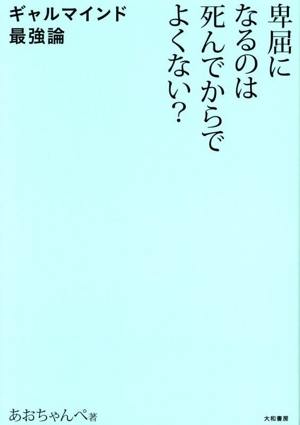 卑屈に
なるのは
死んでからで
よくない?
ギャルマインド
最強論
あおちゃんぺ 著
大和書房